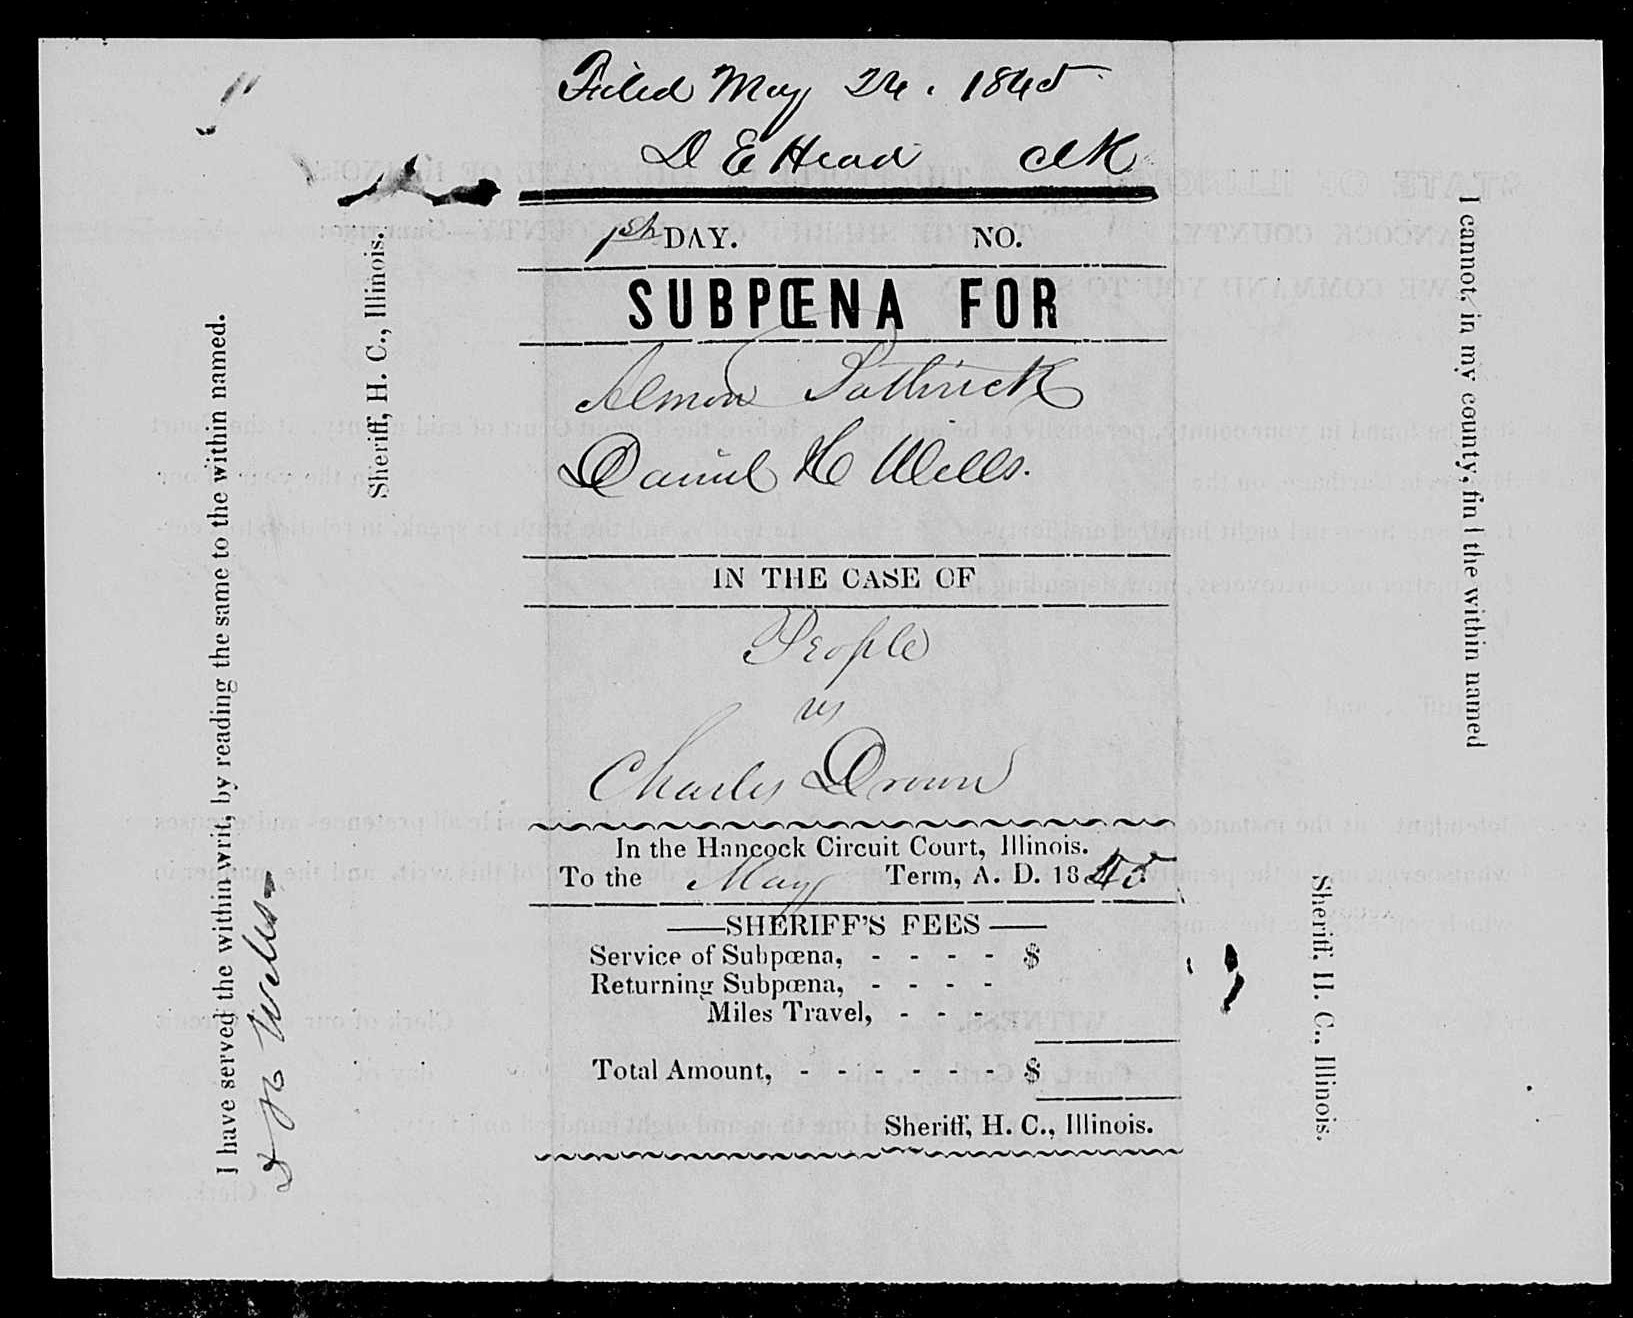 Filed May 24. 1845
D E Head clk
1st DAY. NO.
SUBPŒNA FOR
Almon Pathrick
Daniel H Wells.
IN THE CASE OF
People
vs
Charles Drown
In the Hancock Circuit Court, Illinois.
To the May Term, A. D. 1845
SHERIFF'S FEES
Service of Subpœna, - - - - $
Returning Subpœna, - - - -
Miles Travel, - - -
Total Amount, - - - - - - $
Sheriff, H. C., Illinois.
I have served the within writ, by reading the same to the within named.
D H Wells
Sheriff, H. C., Illinois.
I cannot, in my county, find the within named
Sheriff, H. C., Illinois.